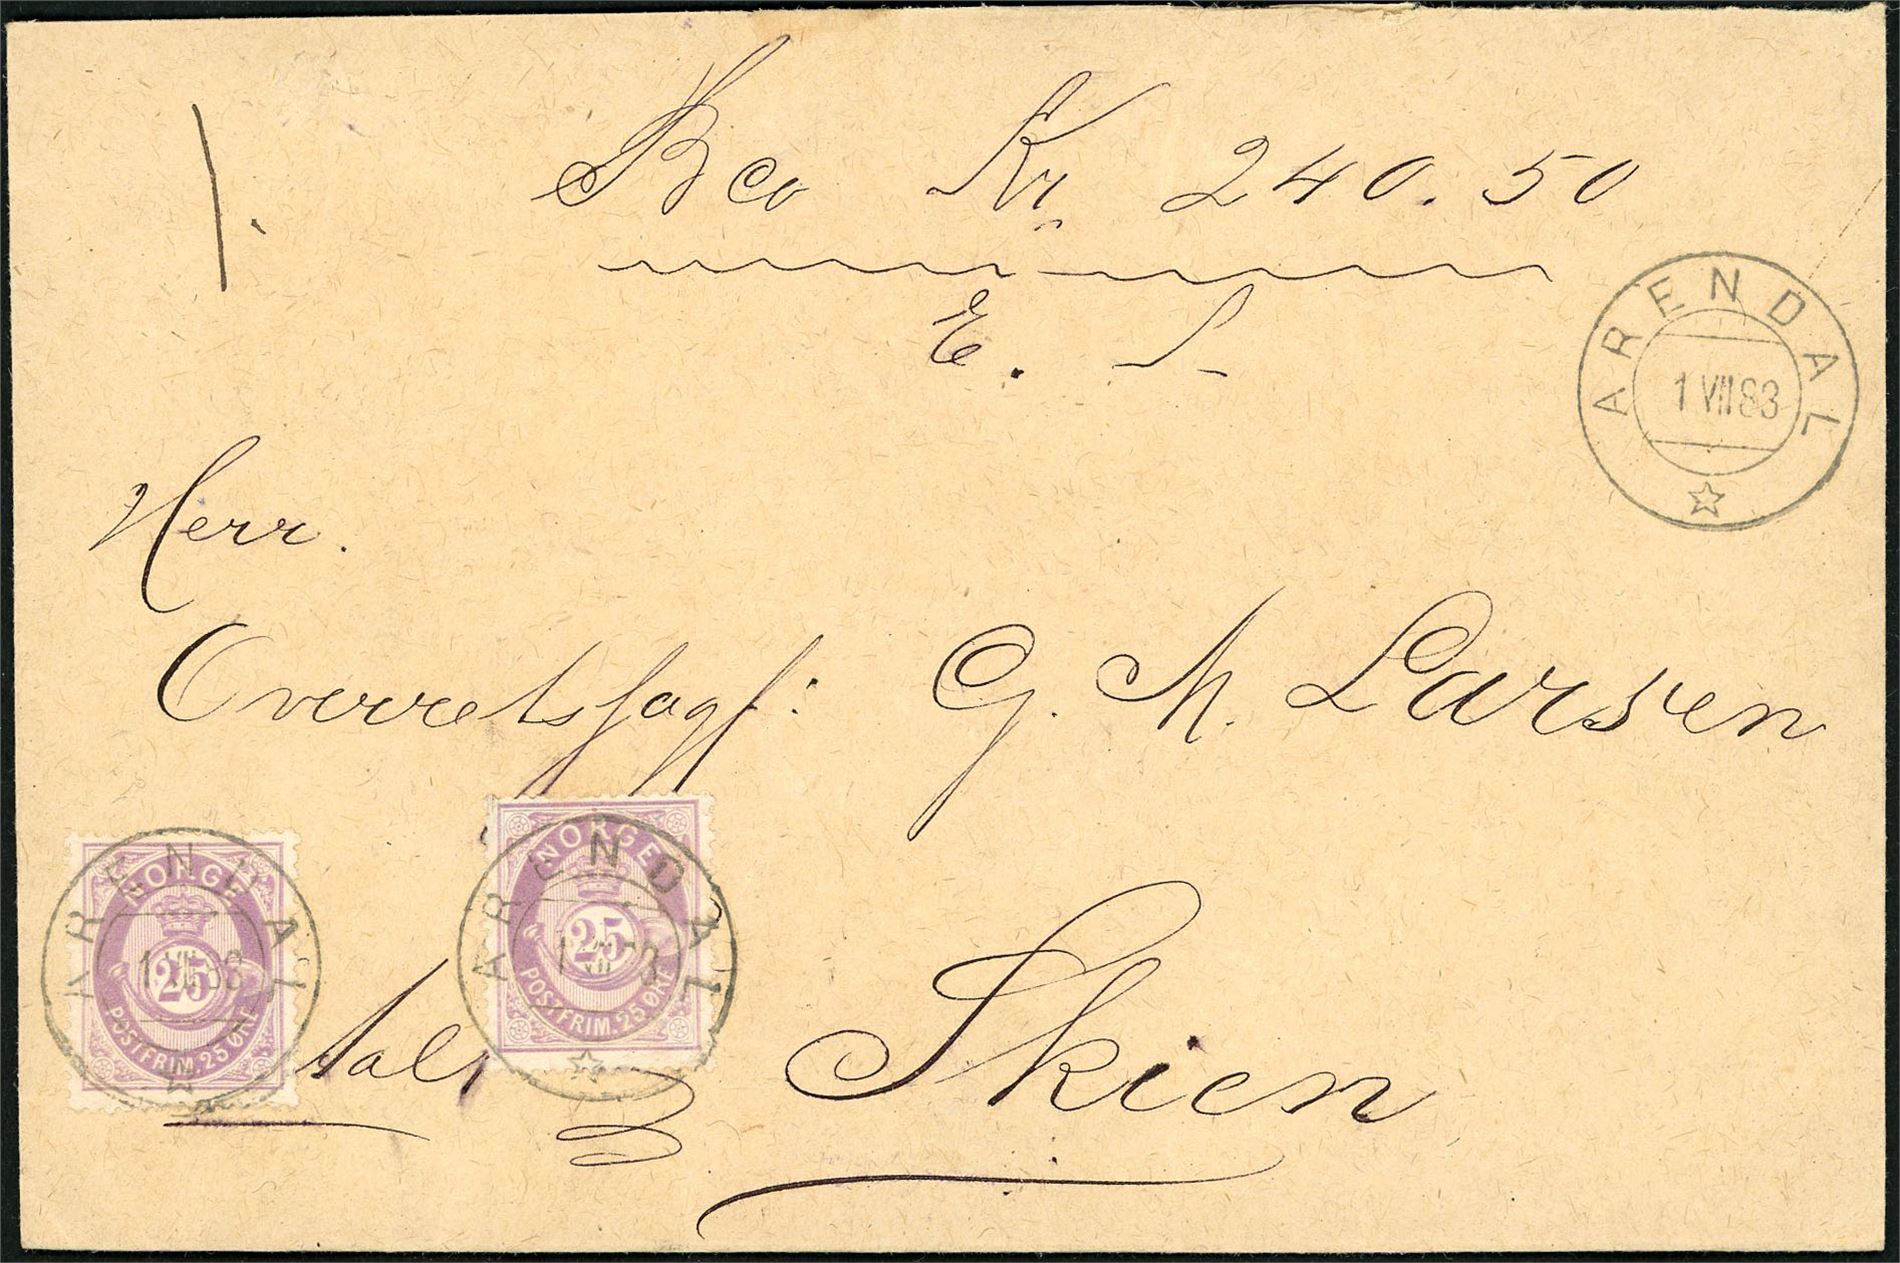 1.
Bco Kr 240.50
E. S.
ARENDAL
1 VII 83
Herr.
Overretssagf: G. M. Larsen
Skien
NORGE
25
POSTFRIM. 25 ØRE
ARENDAL
1 VII 83
NORGE
25
POSTFRIM. 25 ØRE
ARENDAL
1 VII 83